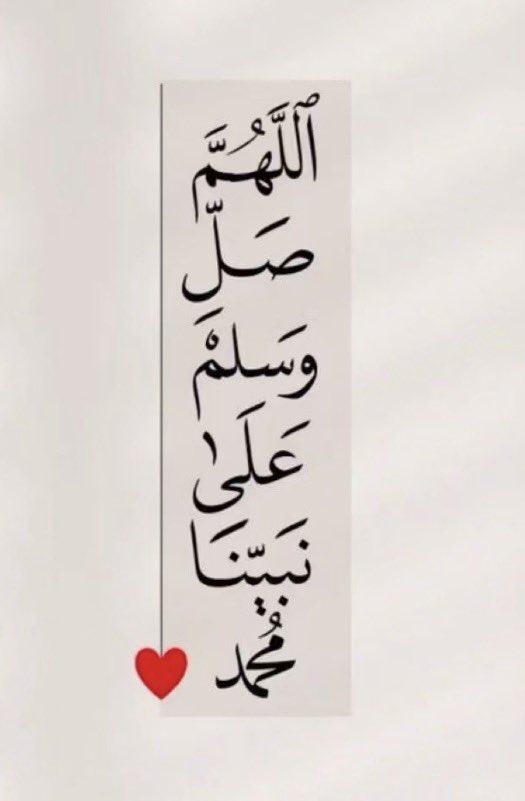 ٱللَّهُمَّ
صَلِّ
وَسَلمْ
عَلَىٰ
نَبَيِّنَا
مُحمد